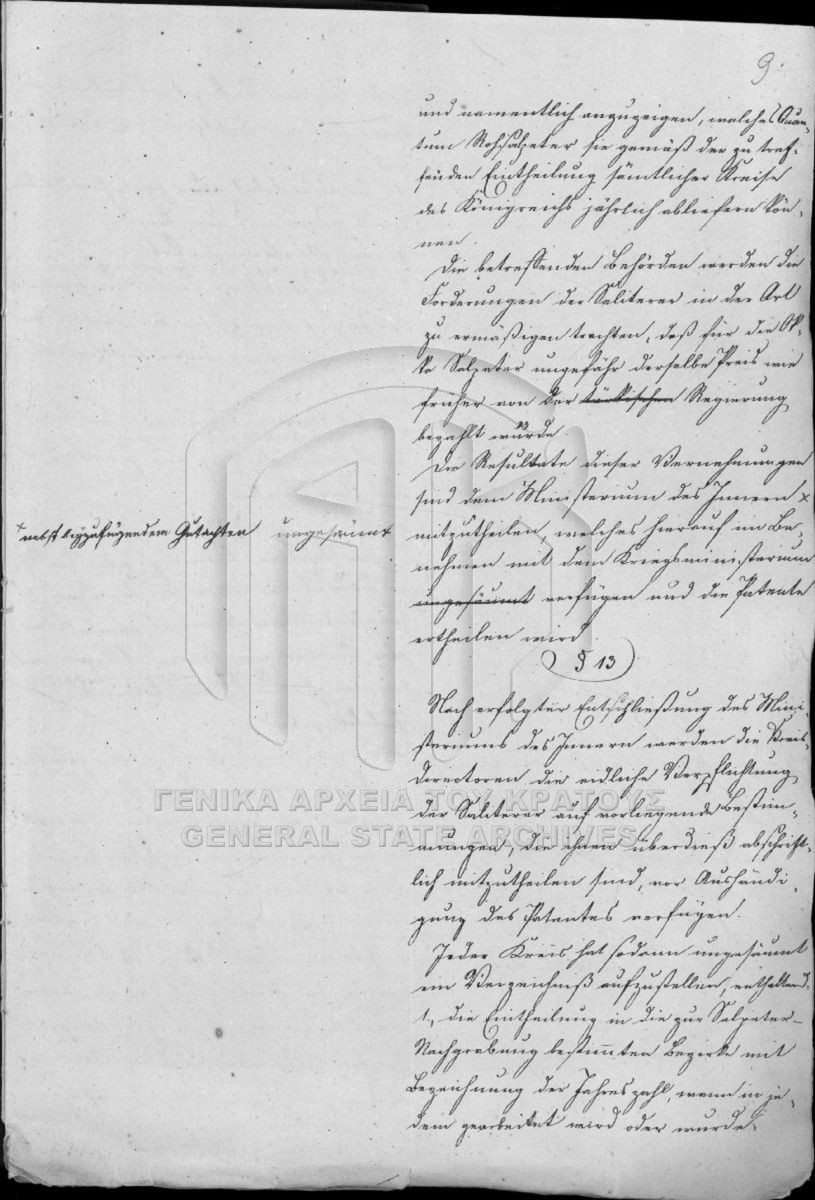 9.
und namentlich anzuzeigen, welches Quan-
tum Rohsalpeter sie gemäß der zu tref-
fenden Eintheilung sämtlicher Kreise
des Königreichs jährlich abliefern kön-
nen.
Die betreffenden Behörden werden die
Forderungen der Saliterer in der Art
zu ermäßigen trachten, daß für die Ok-
ka Salpeter ungefähr derselbe Preis wie
früher von der türkischen Regierung
bezahlt würde.
Die Resultate dieser Vernehmungen
sind dem Ministerium des Innern x
x nebst beyzufügendem Gutachten ungesäumt
mitzutheilen, welches hierauf im Be-
nehmen mit dem Kriegsministerium
ungesäumt verfügen und die Patente
ertheilen wird.
§ 13
Nach erfolgter Entschließung des Mini-
steriums des Innern werden die Kreis-
directoren die eidliche Verpflichtung
der Saliterer auf vorliegende Bestim-
mungen, die ihnen überdieß abschrift-
lich mitzutheilen sind, vor Aushändi-
gung des Patentes verfügen.
Jeder Kreis hat sodann ungesäumt
ein Verzeichniß aufzustellen, enthaltend:
1., die Eintheilung in die zur Salpeter-
Nachgrabung bestimmten Bezirke mit
Bezeichnung der Jahreszahl, wann in je-
dem gearbeitet wird oder wurde.
ΓΕΝΙΚΑ ΑΡΧΕΙΑ ΤΟΥ ΚΡΑΤΟΥΣ
GENERAL STATE ARCHIVES